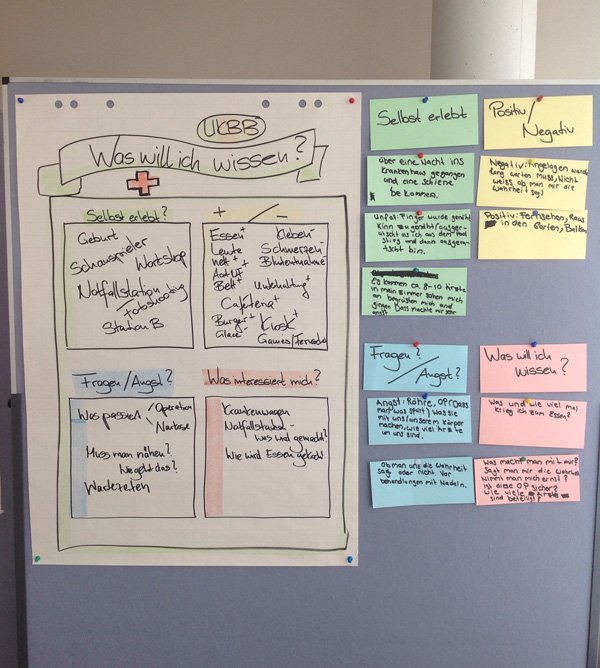 UKBB
Was will ich wissen?
Selbst erlebt?
Geburt
Schauspieler
Workshop
Notfallstation
Fotoshooting
Station B
+ / -
Essen+
Leute
nett+
Bett+
Cafeteria+
Burger+
Glace
Kleben-
Schmerzen-
Blutentnahme-
Unterhaltung+
Kiosk+
Games/Fernseh
Fragen/Angst?
Was passiert
Operation
Narkose
Muss man nähen?
Wie geht das?
Was interessiert mich?
Krankenwagen
Notfallstation-
Was wird gemacht?
Wie wird Essen gekocht
Selbst erlebt
über eine Nacht ins
Krankenhaus gegangen
und eine Schiene
bekommen.
Unfall: Finger wurde genäht
Kinn zu genäht/ausger-
utscht als ich aus dem Pool
stieg und dann ausgeru-
tscht bin.
Es kommen ca. 8-10 Ärzte
in mein Zimmer sahen mich
an begrüßten mich und
gingen. Das machte mir sehr
angst
Positiv/
Negativ
Negativ: Eingelogen wurde
lang warten muss, Nicht
weiss ob man mir die
Wahrheit sagt
Positiv: Fernsehen, Raus
in den Garten, Balkon
Fragen?
Angst?
Angst: Röhre, OP (Dass
man was spürt) was sie
mit uns/unserem körper
machen, wie viel Ärzte
um uns sind.
Ob man uns die Wahrheit
sagt oder nicht. Vor
behandlungen mit Nadeln.
Was will ich
wissen?
Was und wie viel mal
krieg ich zum Essen?
Was macht man mit mir?
Sagt man mir die Wahrheit
Nimmt man mich ernst?
Ist diese OP sicher?
Wie viele Ärzte
sind beteiligt?